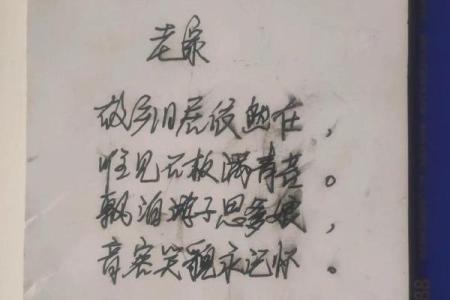 老家
故乡旧居依然在，
唯见石板满青苔。
飘泊游子思爹娘，
音容笑貌永记怀。